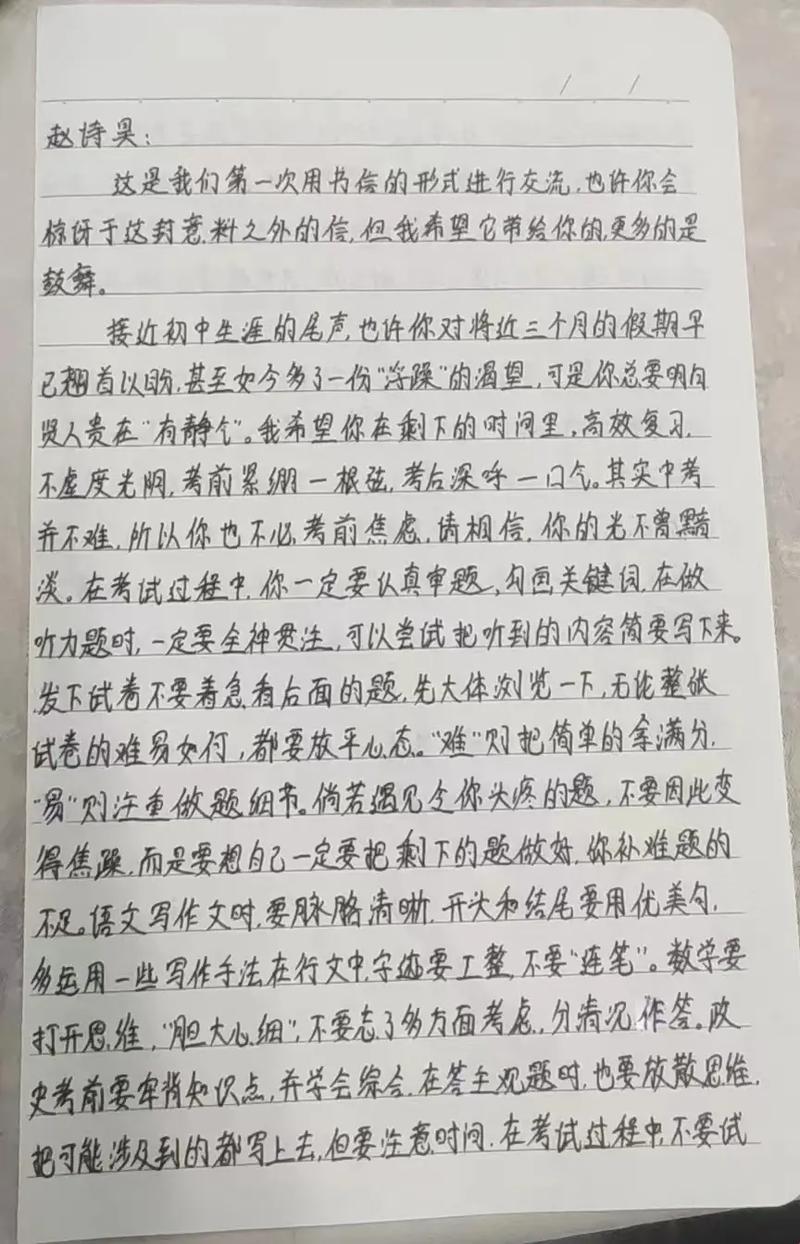 / /
赵诗昊：
这是我们第一次用书信的形式进行交流，也许你会
惊讶于这封意料之外的信，但我希望它带给你的，更多的是
鼓舞。
接近初中生涯的尾声，也许你对将近三个月的假期早
已翘首以盼，甚至如今多了一份“浮躁”的渴望，可是你总要明白
贤人贵在“有静气”。我希望你在剩下的时间里，高效复习，
不虚度光阴，考前紧绷一根弦，考后深呼一口气。其实中考
并不难，所以你也不必考前焦虑，请相信，你的光不曾黯
淡。在考试过程中，你一定要认真审题，勾画关键词，在做
听力题时，一定要全神贯注，可以尝试把听到的内容简要写下来。
发下试卷不要着急看后面的题，先大体浏览一下，无论整张
试卷的难易如何，都要放平心态。“难”则把简单的拿满分，
“易”则注重做题细节。倘若遇见令你头疼的题，不要因此变
得焦躁，而是要想自己一定要把剩下的题做好，弥补难题的
不足。语文写作文时，要脉胳清晰，开头和结尾要用优美句，
多运用一些写作手法在行文中，字迹要工整，不要“连笔”。数学要
打开思维，“胆大心细”，不要忘了多方面考虑，分情况作答。政
史考前要牢背知识点，并学会综合，在答主观题时，也要放散思维，
把可能涉及到的都写上去，但要注意时间，在考试过程中，不要试